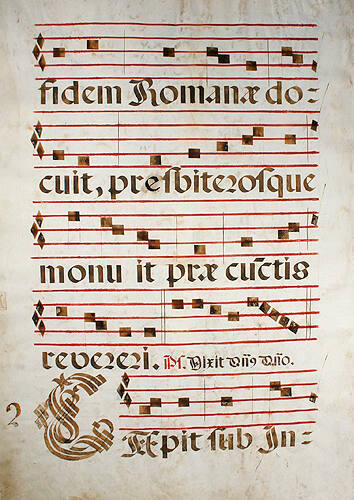 fidem Romanæ do-
cuit, presbiterosque
monu it præ cunctis
revereri. Ps. Dixit Dñs Dño.
CÆpit sub In-